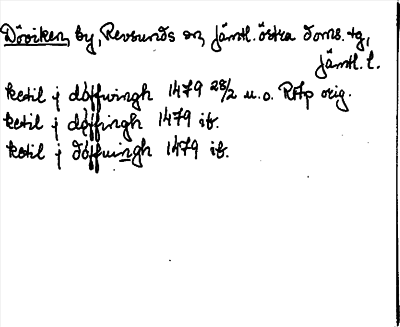 Döviken, by, Revsunds sn, Jämtl. östra doms. tg,
Jämtl. l.
ketil j døffwingh 1479 28/2 u. o. RAp orig.
ketil j døffingh 1479 ib.
ketil j døffuingh 1479 ib.